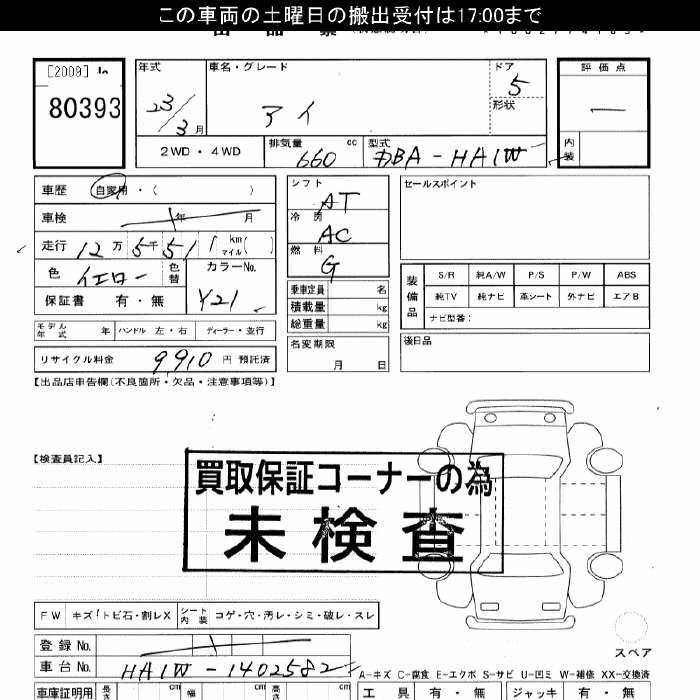 この車両の土曜日の搬出受付は17:00まで
[2009]
80393
年式 車名・グレード ドア 評価点
23/3月 アイ 5 形状 —
2WD・4WD 排気量 660 cc 型式 DBA-HA1W 内装
車歴 自家用・( )
車検 年 月
走行 12万5千51 km マイル ( )
色 イエロー 色替 カラーNo. Y21
保証書 有・無
シフト AT
冷房 AC
燃料 G
乗車定員 名
積載量 kg
総重量 kg
名変期限 月 日
セールスポイント
装備品 S/R 純A/W P/S P/W ABS
純TV 純ナビ 革シート 外ナビ エアB
ナビ型番:
後日品
モデル年式 年 ハンドル 左・右 ディーラー・並行
リサイクル料金 9910 円 預託済
【出品店申告欄(不良箇所・欠品・注意事項等)】
【検査員記入】
買取保証コーナーの為
未検査
FW キズ!トビ石・割レX シート内装 コゲ・穴・汚レ・シミ・破レ・スレ
スペア
登録No.
車台No. HA1W-1402582
A-キズ C-腐食 E-エクボ S-サビ U-凹ミ W-補修 XX-交換済
車庫証明用 長さ cm 幅 cm 高さ cm 工具 有・無 ジャッキ 有・無